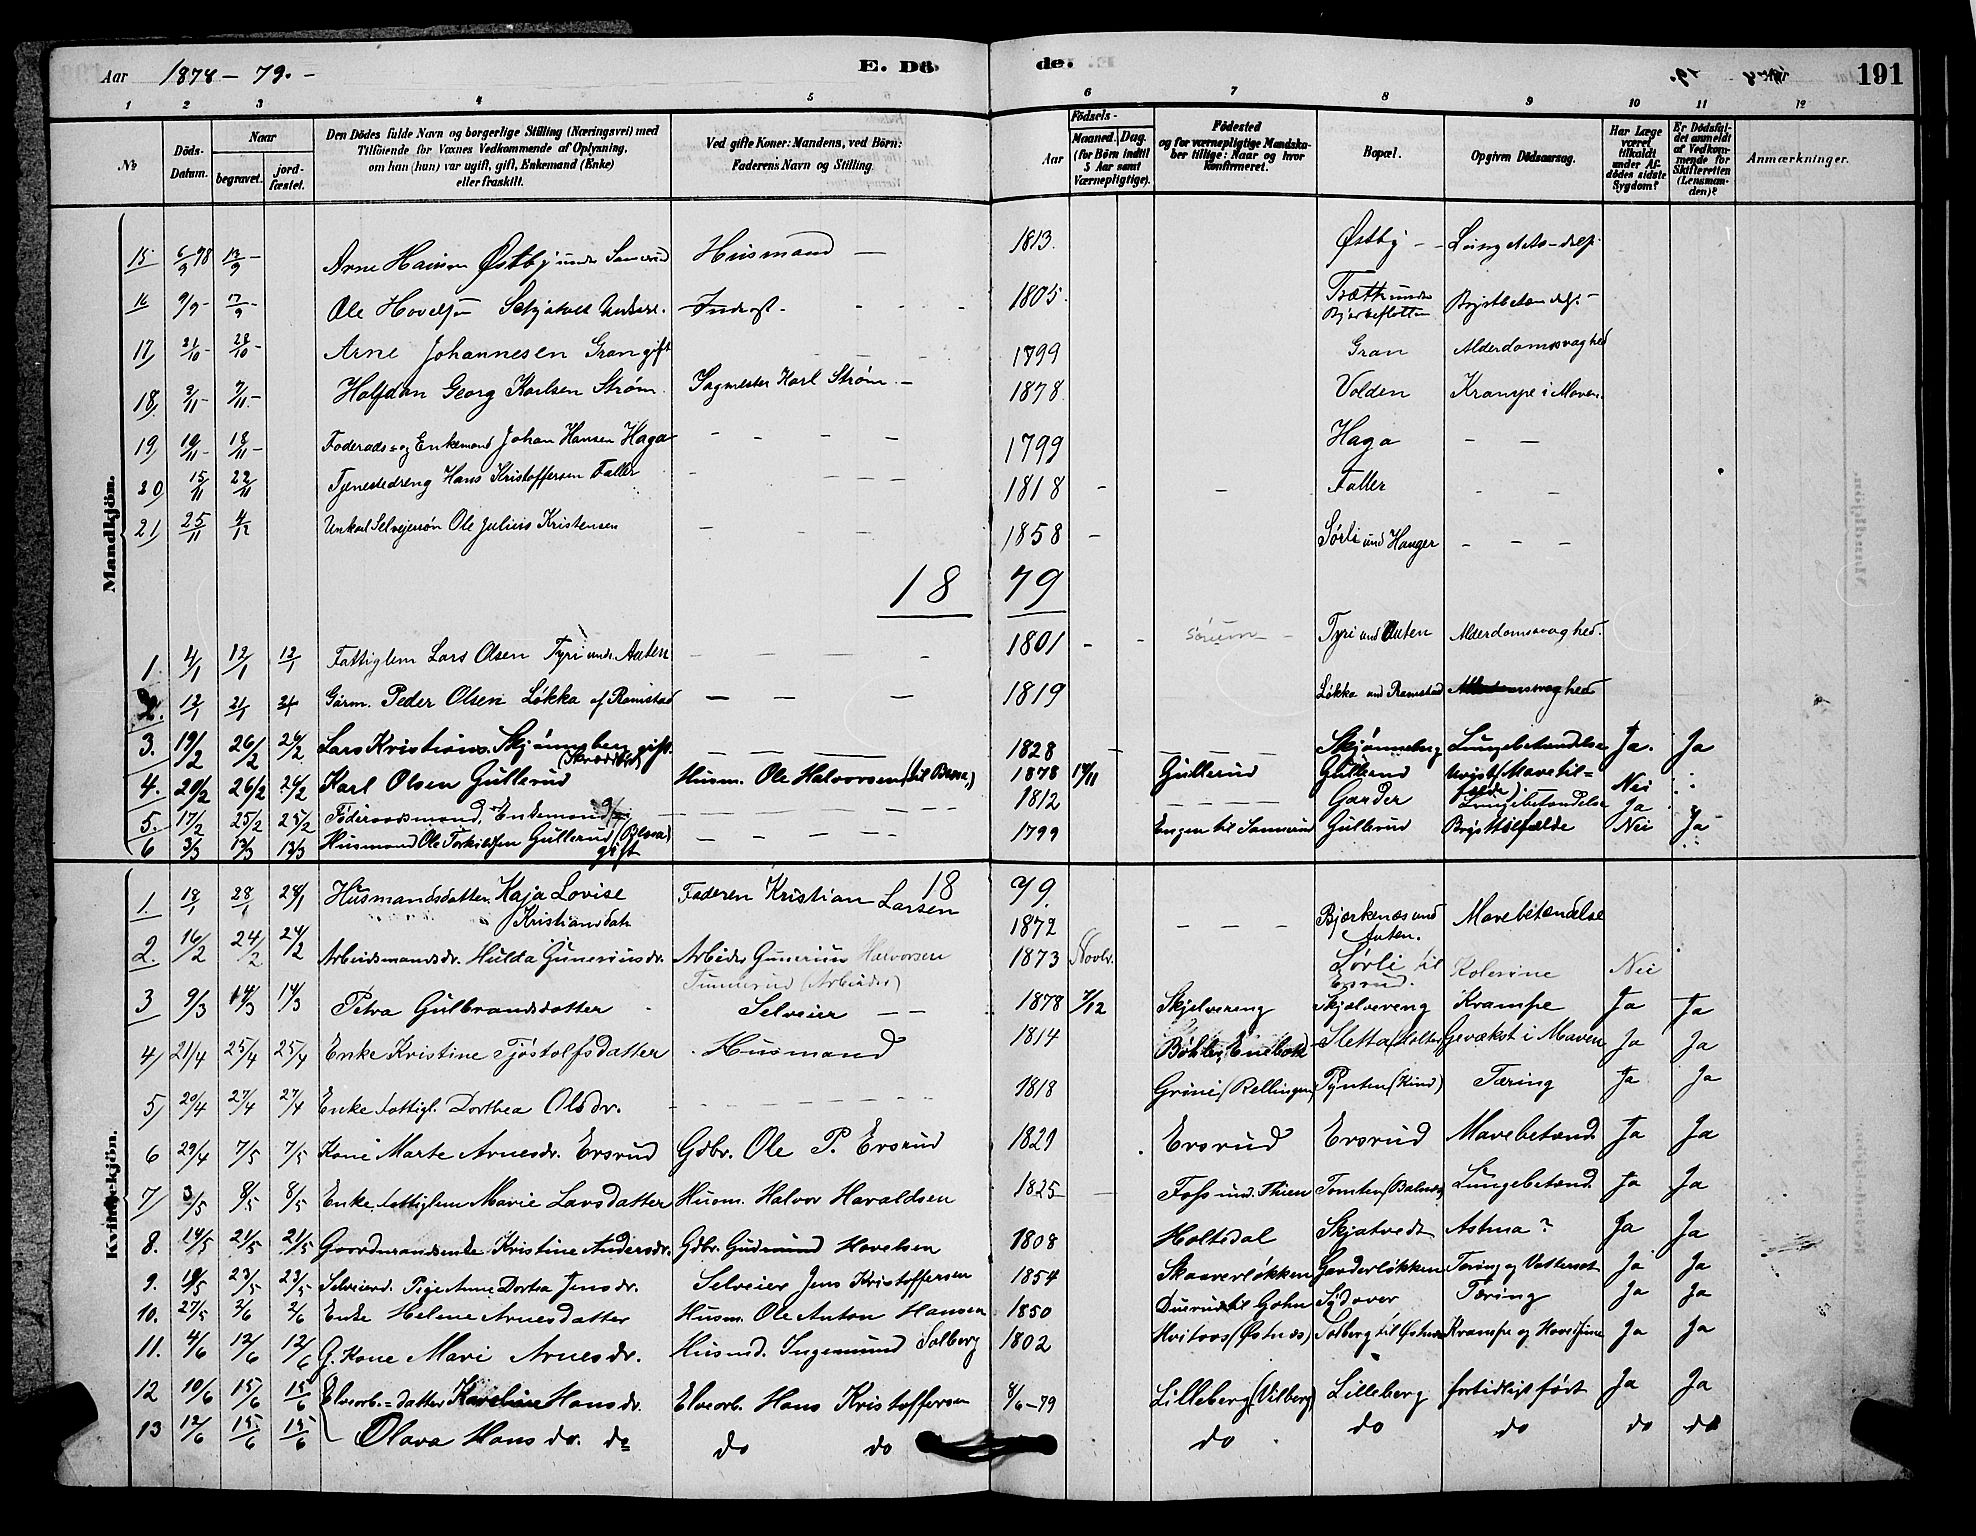 Aar 1878 - 79. -
E. Dö
de.
191
1 2 3 4 5 6 7 8 9 10 11 12
No
Döds-Datum.
Naar
begravet.
jord-fæstet.
Den Dödes fulde Navn og borgerlige Stilling (Næringsvei) med
Tilföiende for Voxnes Vedkommende af Oplysning,
om han (hun) var ugift, gift, Enkemand (Enke)
eller fraskilt.
Ved gifte Koner: Mandens, ved Börn:
Faderens Navn og Stilling.
Födsels-
Aar
Maaned. Dag.
(for Börn indtil
5 Aar samt
Værnepligtige).
Födested
og for værnepligtige Mandska-
ber tillige: Naar og hvor
konfirmeret.
Bopæl.
Opgiven Dödsaarsag.
Har Læge
været
tilkaldt
under Af-
dödes sidste
Sygdom?
Er Dödsfal-
det anmeldt
af Vedkom-
mende for
Skifteretten
(Lensman-
den)?
Anmærkninger.
Mandkjön.
15 6/9 78 13/9 - Arne Hansen Østby under Husmand — 1813. Østby -
16 9/9 - 17/9 - Ole Hovelsen 1805. Brystbetændelse -
17, 21/10 - 28/10 - Arne Johannesen Gran gift 1799 Gran Alderdomssvaghed
18, 2/11 - 9/11 - Halfdan Georg Karlsen Strøm. Sagmester Karl Strøm. — 1878. Volden Krampe i Maven.
19, 10/11 - 18/11 - Foderaads- og Enkemand Johan Hansen Haga 1799 Haga — —
20, 15/11 22/11 Tjenestedreng Hans Kristoffersen Faller 1818 - - Faller
21, 25/11 4/12 Unkarl Selveiersøn Ole Julius Kristensen 1858 - Sørli und Hauger - - -
18 79
1. 4/1 12/1 12/1 Fattiglem Lars Olsen Tyri under Aaten 1801 - Sørum - Tyri und Aaten Alderdomssvaghed.
2. 12/1 21/1 Gårm. Peder Olsen Løkka af Ramstad 1819 Løkka und Ramstad Alderdomssvaghed
3. 19/2 26/2 26/2 Lars Kristians. Skjønneberg gift. 1828 - Skjønneberg Lungebetændelse Ja. Ja
4. 20/2 26/2 26/2 Karl Olsen Gullerud Husm. Ole Halvorsen 1878 14/11 Gullerud Gullerud Uvist (Mavetil=
fælde) Nei
5. 17/2 25/2 25/2 Föderaadsmand, Enkemand 1812 Garder Lungebetændelse Ja
6 3/3 13/3 13/3 Husmand Ole Torkildsen Gullerud gift 1799 Engen til Gullerud Brysttilfælde Nei Ja
Kvindekjön.
18 79.
1. 18/1 28/1 28/1 Husmandsdatter Kaja Lovise
Kristiansdatr Faderen Kristian Larsen 1872 - - - Bjærkenæs und
Aaten. Mavebetændelse
2. 16/2 24/2 24/2 Arbeidsmandsdr. Hulda Guneriusdr. Arbeider Gunerius Halvorsen
(Arbeider) 1873 Novbr. Sørli til
Ersrud. Kolerine Nei
3 9/3 14/3 14/3 Petra Gulbrandsdatter Selveier — — 1878 7/12 Skjelvereng Skjelvereng Krampe Ja Ja
4, 21/4 25/4 25/4 Enke Kristine Tjøstolfsdatter Husmand 1814 Sletta (Holter) Gevækst i Maven Ja Ja
5, 20/4 27/4 27/4 Enke fattigl. Dorthea Olsdr. 1818 Grini (Rellingen) Pynten (Kind) Tæring Ja Ja
6 29/4 7/5 7/5 Kone Marte Arnesdr. Ersrud Gdbr. Ole P. Ersrud 1829 Ersrud Ersrud Mavebetænd. Ja Ja
7, 3/5 8/5 8/5 Enke fattiglem Marie Larsdatter Husm. Halvor Haraldsen 1825 — Foss und. Tomten (Balnes) Lungebetænd. Ja Ja
8. 14/5 21/5 21/5 Gaardmandsenke Kristine Andersdr. Gdbr. Gudmund Hovelsen 1808 Holtsdal Skjatvedt Astma? Ja Ja
9. 18/5 23/5 23/5 Selveierd. Pige Anne Dortea Jensdr. Selveier Jens Kristoffersen 1854 Skaarerløkken Garderløkken Tæring og Vattersot Ja Ja
10. 27/5 2/6 2/6 Enke Helene Arnesdatter Husm. Ole Anton Hansen 1850 til Sydover Tæring Ja Ja
11. 4/6 12/6 12/6 G. Kone Mari Arnesdr. Husmd. Ingemund Solberg 1802 (Østnæs) Solberg til Østnæs Krampe og Ja Ja
12 10/6 15/6 15/6 Elvearb.=datter Karoline Hansdr. Elvearb. Hans Kristoffersen 8/6-79 Lilleberg (Vilberg) Lilleberg fortidligt født Ja Ja
13 12/6 15/6 15/6 Olava Hansdr. do do do do do do do do